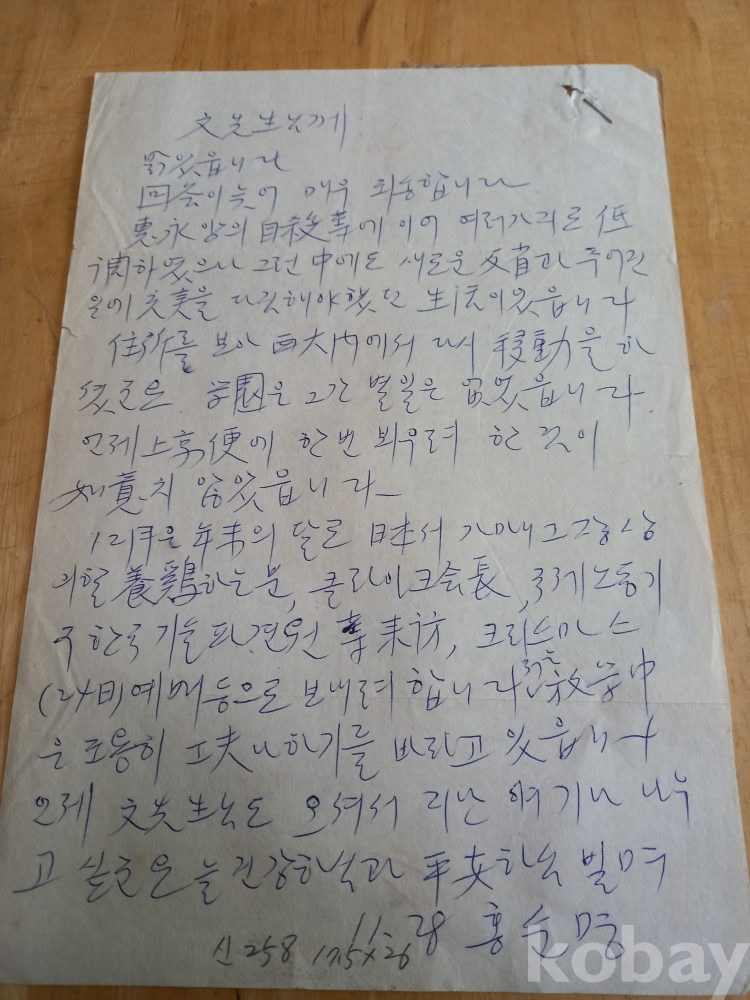 文先生님께
回答이 늦어 매우 죄송합니다
惠永양의 自殺 등에 이어 여러가지로 低
調하였으나 그런 中에도 새로운 反省과 주어진
을 다짐해야 했던 生活이었읍니다
住所를 보아 西大門에서 다시 移動을 하
셨군요. 学園은 그간 별일은 없었읍니다.
언제 上京便에 한번 뵈우려 한 것이
如意치 않았읍니다
12月은 年末의 달로 日本서
養鷄하는 분, 클라이크 会長, 국제노동기
구 한국 기술파견원 等 来訪, 크리스마스
(24日) 예배 등으로 보내려 합니다 放学中
은 조용히 工夫나 하기를 바라고 있읍니다
언제 文先生님도 오셔서 지난 얘기나 나누
고 싶군요 늘 건강하심과 平安하심 빌며
11.28 홍순명
신 258 17.5×26
kobay